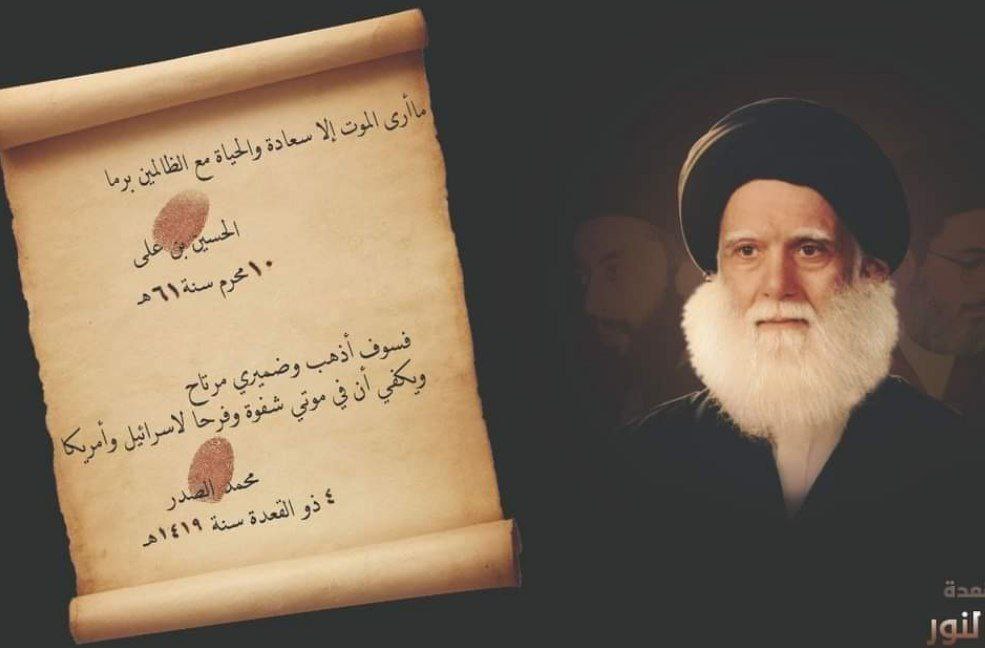 ماأرى الموت إلا سعادة والحياة مع الظالمين برما
الحسين بن علي
١٠ محرم سنة ٦١ هـ
فسوف أذهب وضميري مرتاح
ويكفي أن في موتي شفوة وفرحا لاسرائيل وأمريكا
محمد الصدر
٤ ذو القعدة سنة ١٤١٩هـ
لنور